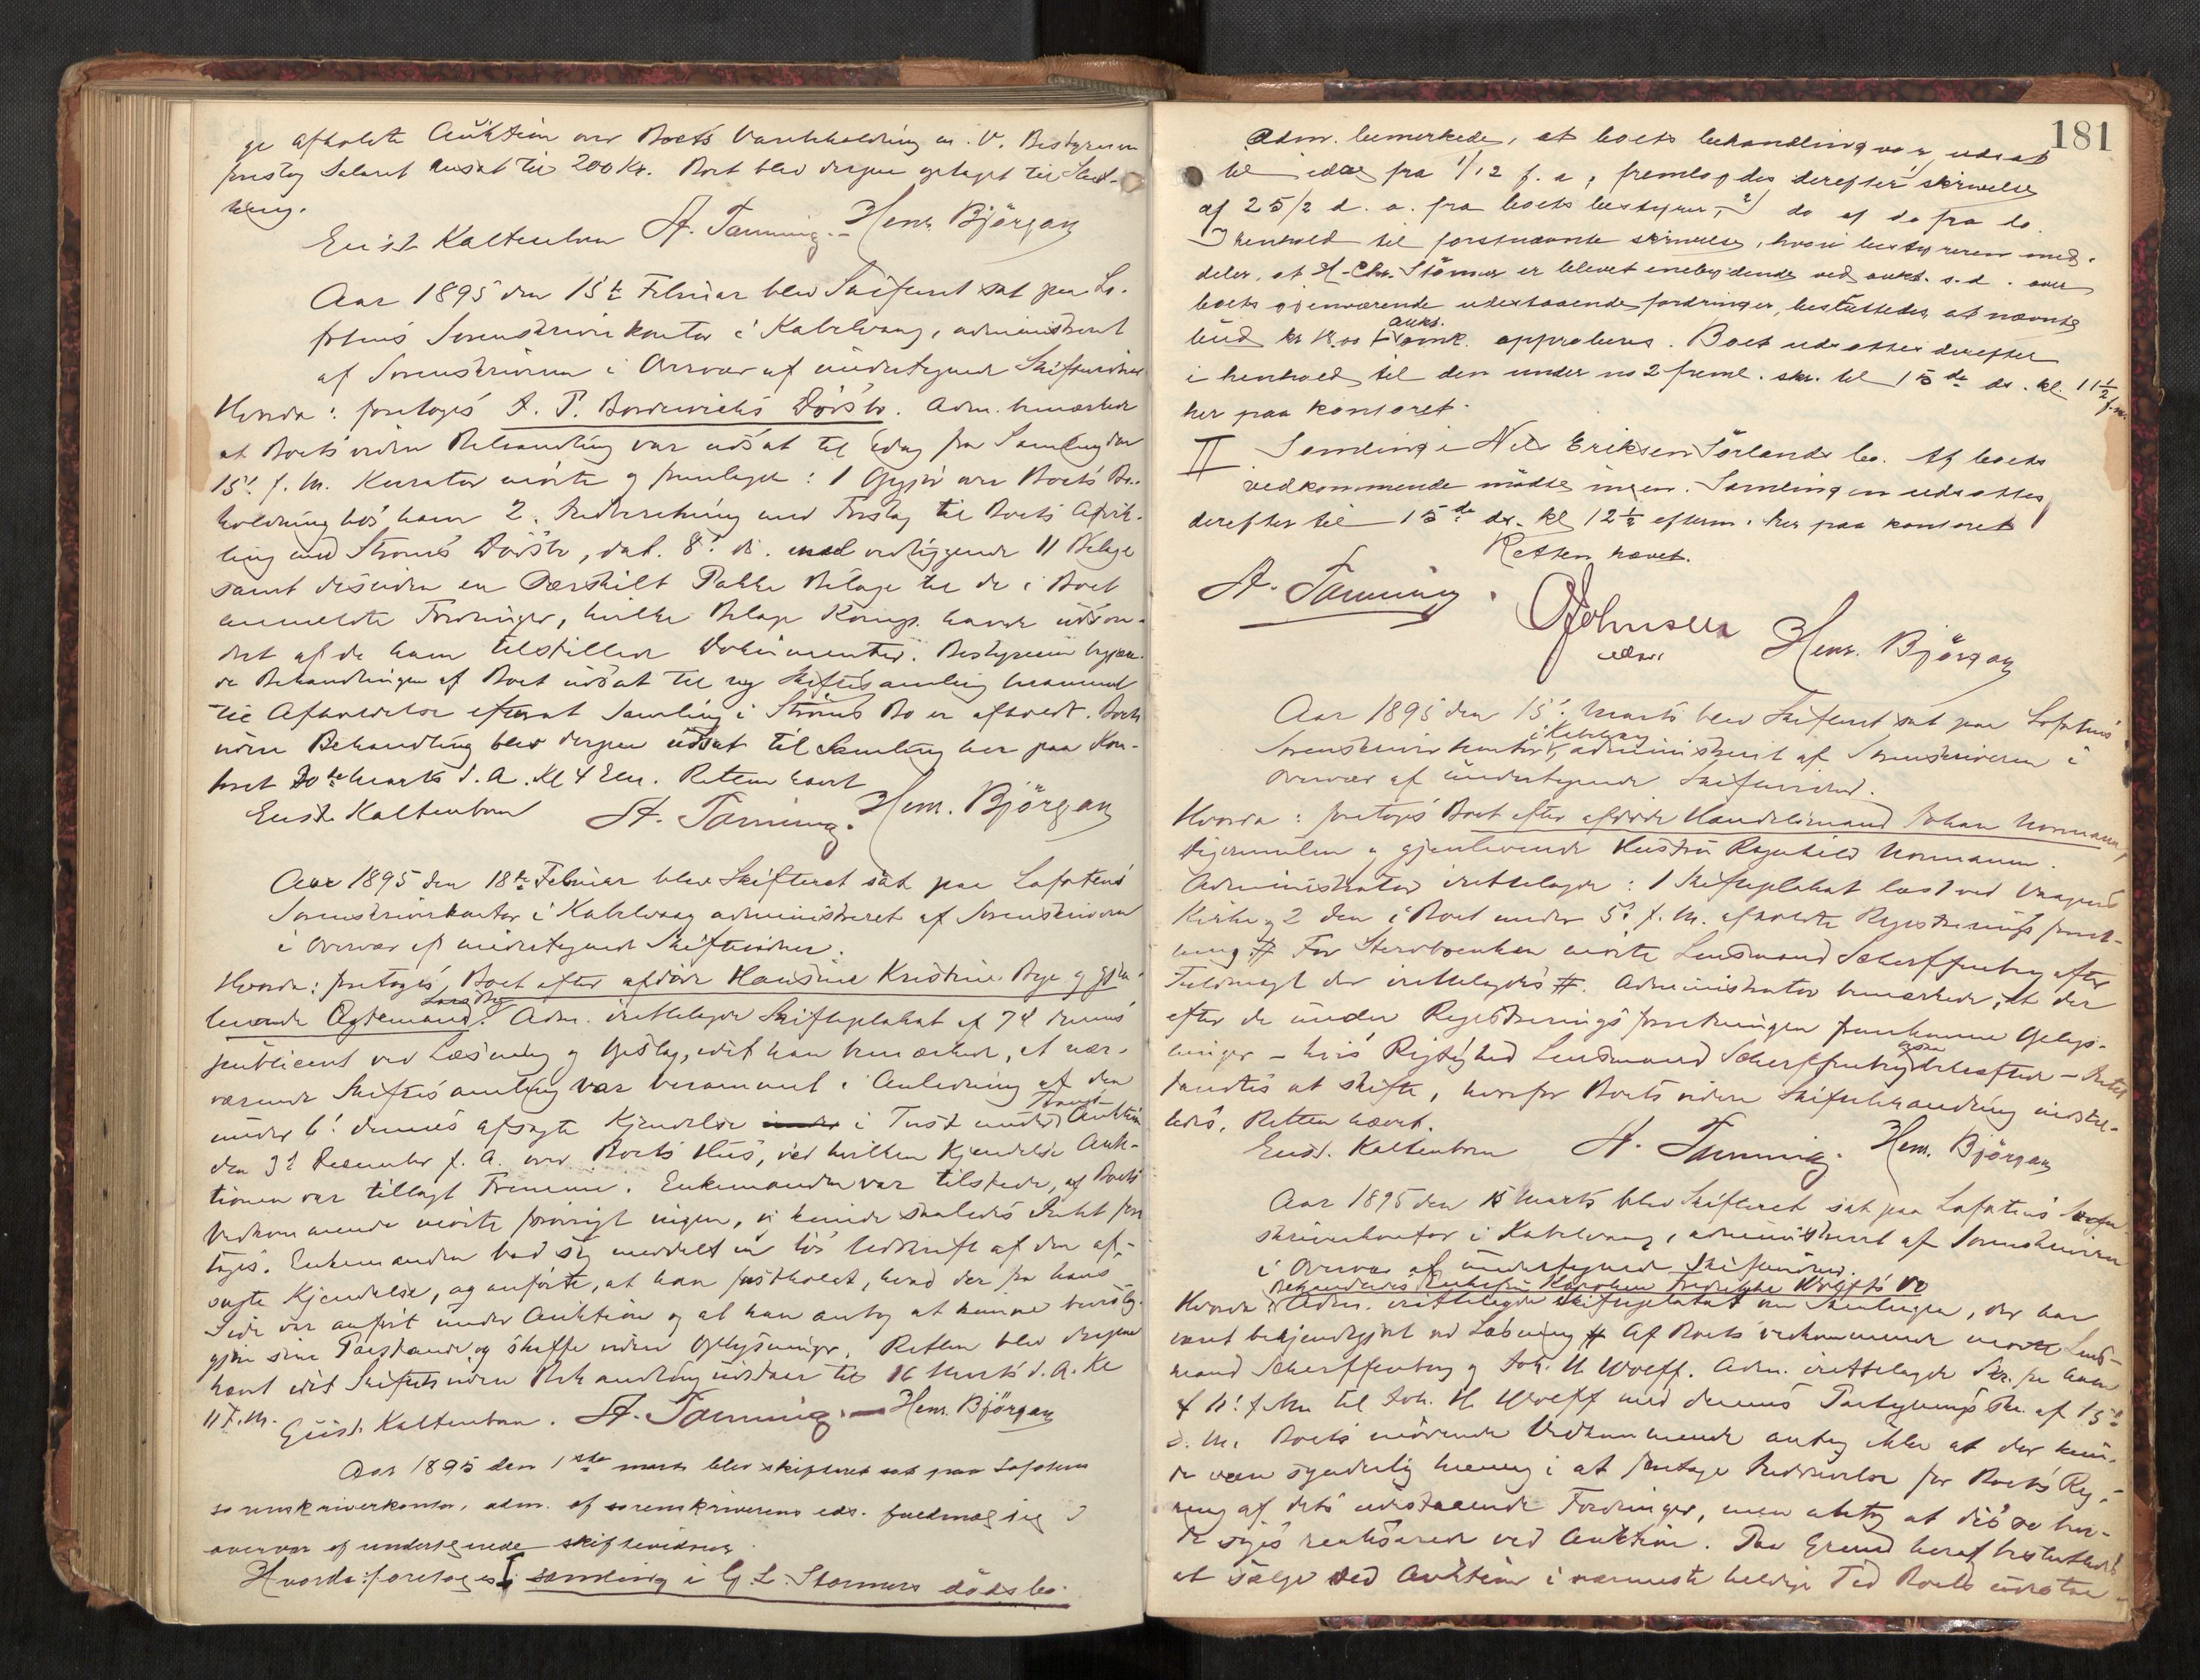 ge afholdte Auktion over Boets Varebeholdning m. V. Bestyrerens
forslag Salaret ansat til 200 Kr. Boet blev derpaa optaget til Slut-
ning.
Eust. Kaltenborn A. Tanning. Henr. Björgan
Aar 1895 den 15de Februar blev Skifteret sat paa Lo-
fotens Sorenskriverkontor i Kabelvaag, administreret
af Sorenskriveren i Overvær af undertegnede Skiftevidner
Hvorda: foretoges A. P. Bordewichs Dödsbo. Adm. bemærkede
at Boets videre Behandling var udsat til idag fra Samling den
15. f. M. Kurator mödte og fremlagde: 1 Opgjör over Boets Be-
holdning hos ham 2. Indberetning med Forslag til Boets Afvik-
ling med Ströms Dödsbo, dat. 8. ds. med vedliggende 11 Bilage
samt desuden en særskilt Pakke Bilage til de i Boet
anmeldte Fordringer, hvilke Bilage Komp. havde udson-
dret af de ham tilstillede Dokumenter. Bestyreren begjær-
de Behandlingen af Boet udsat til ny Skiftesamling berammet
til Afholdelse efterat Samling i Ströms Bo er afholdt. Boets
videre Behandling blev derpaa udsat til Samling her paa Kon-
toret 30te Marts d. A. Kl 4 Em. Retten hævet
Eust. Kaltenborn A. Tanning. Henr. Björgan
Aar 1895 den 18de Februar blev Skifteret sat paa Lofotens
Sorenskriverkontor i Kabelvaag administreret af Sorenskriveren
i Overvær af undertegnede Skiftevidner.
Hvorda: foretoges Boet efter afdöde Hansine Kristine Bye og gjen-
levende Ægtemand. Adm. irettelagde Skifteplakat af 7d dennes
publiceret ved Læsning og Opslag, idet han bemærkede, at nær-
værende Skiftesamling var berammet i Anledning af den
under 6. dennes afsagte Kjendelse i Tvist under Tvangs Auktion
den 3. December f. A. over Boets Hus, ved hvilken Kjendelse Auk-
tionen var tillagt Fremme. Enkemanden var tilstede, af Boets
Vedkommende mödte forövrigt ingen, og kunde saaledes Intet fore-
tages. Enkemanden bad sig meddelt en lös Udskrift af den af-
sagte Kjendelse, og anförte, at han fastholdt, hvad der fra hans
Side var anfört under Auktionen og at han antog at kunne bevislig-
gjöre sine Paastande og skaffe videre Oplysninger. Retten blev derpaa
hævet idet Skiftets videre Behandling udstaar til 16 Marts d. A. Kl
11 F.M. Eust. Kaltenborn. A. Tanning. — Henr. Björgan
Aar 1895 den 1ste marts blev skifteret sat paa Lofotens
sorenskriverkontor, adm. af sorenskriverens eds. fuldmægtig i
overvær af undertegnede skiftevidner
Hvorda: foretoges I samling i G. L. Störmers dödsbo.
181
Adm. bemerkede, at boets behandling var udsat
til idag fra 1/12 f. a, fremlagdes derefter skrivelse
af 25/2 d. a. fra boets bestyrer, 2) do af do fra do.
I henhold til förstnævnte skrivelse, hvori bestyreren med-
deler, at H. Chr. Störmer er blevet enebydende ved aukt. s.d. over
boets gjenværende udestaaende fordringer, besluttedes at nævnte
bud kr 18.00 + aukt. omk. approberes. Boet udsattes derefter
i henhold til den under no 2 freml. skr. til 15de ds. kl. 11½ f.m.
her paa kontoret.
II Samling i Nils Eriksen Sörlands bo. Af boets
vedkommende mödte ingen. Samlingen udsattes
derefter til 15de ds. kl 12½ efterm. her paa kontoret
Retten hævet.
A. Tanning. O Johnsen edsv. Henr. Björgan
Aar 1895 den 15. Marts blev Skifteret sat paa Lofotens
Sorenskriverkontor i Kabelvaag, administreret af Sorenskriveren i
Overvær af undertegnede Skiftevidner.
Hvorda: foretoges Boet efter afdöde Handelsmand Johan Normann,
Digermulen og gjenlevende Hustru Ragnhild Normann.
Administrator irettelagde: 1 Skifteplakat læst ved Vaagens
Kirke og 2 den i Boet under 5. f. M. afholdte Registreringsforret-
ning # For Sterboenken mödte Lensmand Scherffenberg efter
Fuldmagt der irettelagdes #. Administrator bemærkede, at der
efter de under Registreringsforretningen fremkomne Oplys-
ninger – hvis Rigtighed Lensmand Scherffenberg ogsaa bekræftede – Intet
fandtes at skifte, hvorfor Boets videre Skiftebehandling indstil-
ledes. Retten hævet.
Eust. Kaltenborn A. Tanning. Henr. Björgan
Aar 1895 den 15 Marts blev Skifteret sat paa Lofotens Soren-
skriverkontor i Kabelvaag, administreret af Sorenskriveren
i Overvær af undertegnede Skiftevidner.
Behandledes Enkefru Karoline Fredrikke Wolffs Bo
Hvorda: Adm. irettelagde Skifteplakat om Samlingen, der har
været bekjendtgjort ved Læsning # Af Boets vedkommende mödte Lens-
mand Scherffenberg og Joh. H. Wolff. Adm. irettelagde Skr. fra ham
af 11. f. M. til Joh. H. Wolff med dennes Paategnings Skr. af 15.
d. M. Boets mödende Vedkommende antog ikke at der kun-
de være synderlig Mening i at foretage Inddrivelse for Boets Reg-
ning af dets udestaaende Fordringer, men antog at disse bur-
de söges realiserede ved Auktion. Paa Grund heraf besluttedes
at sælge ved Auktion i nærmeste heldige Tid Boets udestaa-